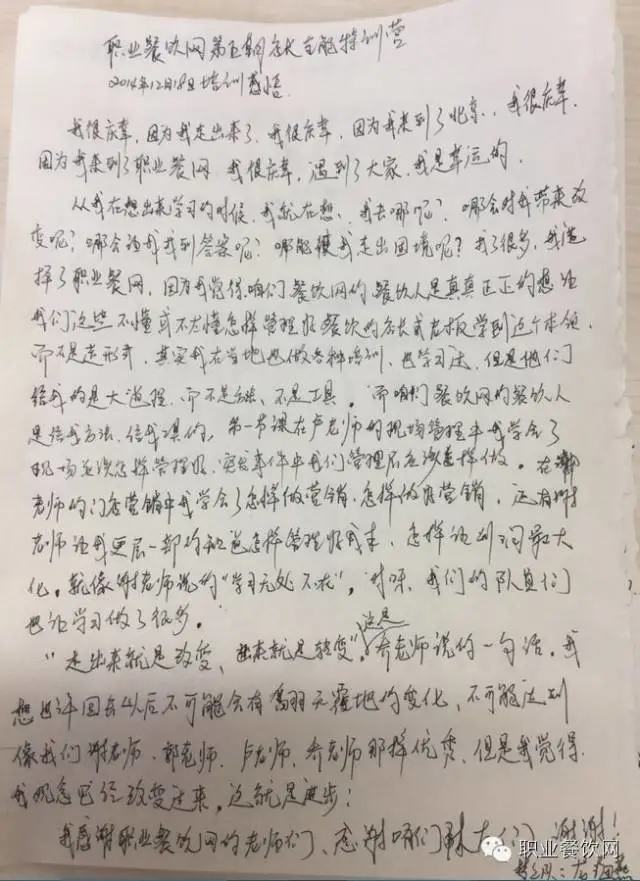 职业餐饮网第五期店长全能特训营
2014年12月18日培训感悟
我很庆幸,因为我走出来了,我很庆幸,因为我来到了北京,我很庆幸,
因为我来到了职业餐网,我很庆幸,遇到了大家,我是幸运的.
从我在想出来学习的时候,我就在想、我去哪呢?哪会对我带来改
变呢?哪会让我找到答案呢?哪能使我走出困境呢?我了很多,我选
择了职业餐网,因为我觉得咱们餐饮网的餐饮人是真真正正的想让
我们这些不懂或不太懂怎样管理好餐饮的店长或老板学到这个本领,
而不是走形式,其实我在当地也做各种培训,也学习过,但是他们
给我的是大道理,而不是方法、不是工具。而咱们餐饮网的餐饮人
是给我方法,给我工具的,第一节课在卢老师的现场管理中我学会了
现场应该怎样管理好,突发事件中我们管理层应该怎样做。在郭
老师的门店营销中我学会了怎样做营销,怎样做好营销,还有谢
老师让我更层一部的知道怎样管理好成本,怎样让利润最大
化。就像谢老师说的"学习无处不在",对呀,我们的队员们
也让学习做了很多。
"走出来就是改变、出来就是转变",这是乔老师说的一句话,我
想也许回去以后不可能会有翻天覆地的变化、不可能达到
像我们谢老师、郭老师、卢老师、乔老师那样优秀,但是我觉得
我观念已经改变过来,这就是进步!
我感谢职业餐饮网的老师们、感谢咱们大门 谢谢!
队:
职业餐饮网